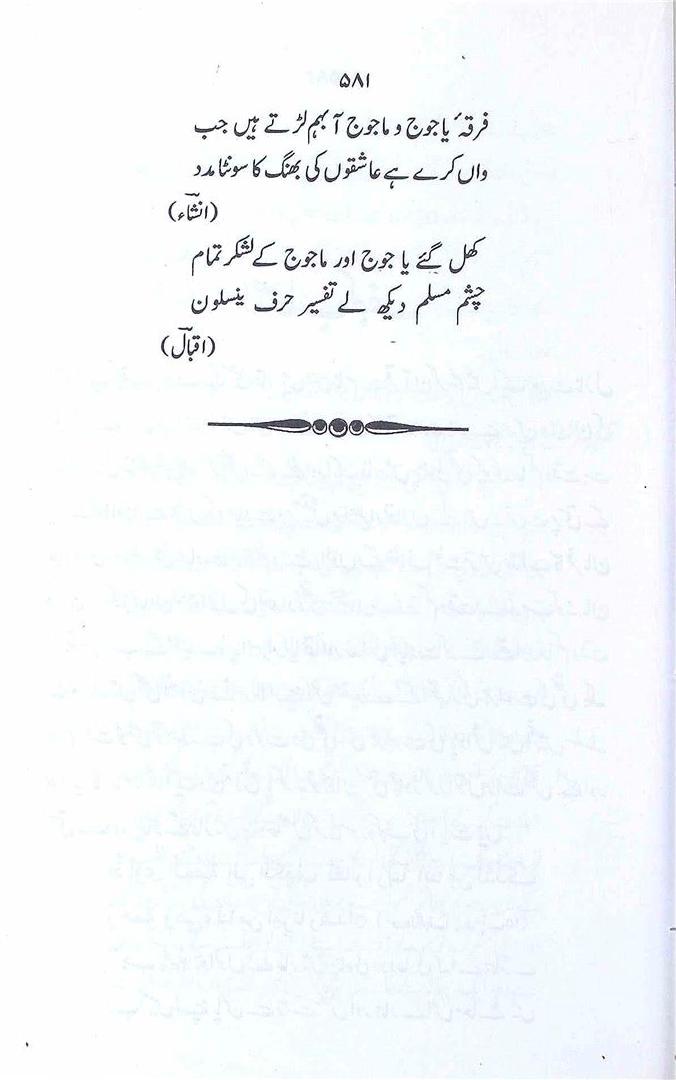 ۵۸۱
فرقۂ یاجوج و ماجوج آ بہم لڑتے ہیں جب
واں کرے ہے عاشقوں کی بھنگ کا سونٹا مدد
(انشاء)
کھل گئے یاجوج اور ماجوج کے لشکر تمام
چشمِ مسلم دیکھ لے تفسیر حرف ینسلون
(اقبال)